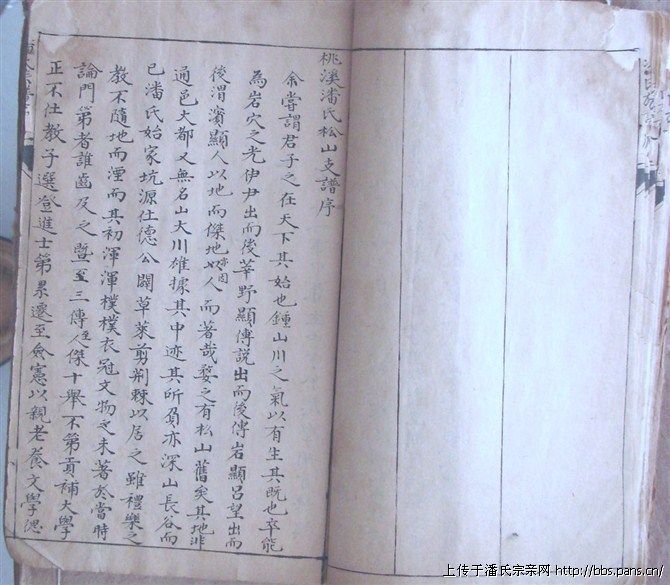 桃溪潘氏松山支譜序
余嘗謂君子之在天下其始也鍾山川之氣以有生其既也卒能
為岩穴之光伊尹出而後莘野顯傅説出而後傅岩顯呂望出而
後渭濱顯人以地而傑地亦因人而著哉婺之有松山舊矣其地非
通邑大都又無名山大川雄據其中迹其所負亦深山長谷而
已潘氏始家坑源仕德公闢草萊剪荊棘以居之雖禮樂之
教不隨地而湮而其初渾渾樸樸衣冠文物之未著於當時
論門第者誰齒及之暨至三傳人傑十舉不第貢補大學
正不仕教子選登進士第累遷至僉憲以親老養文學德
上传于潘氏宗亲网 http://bbs.pans.cn/